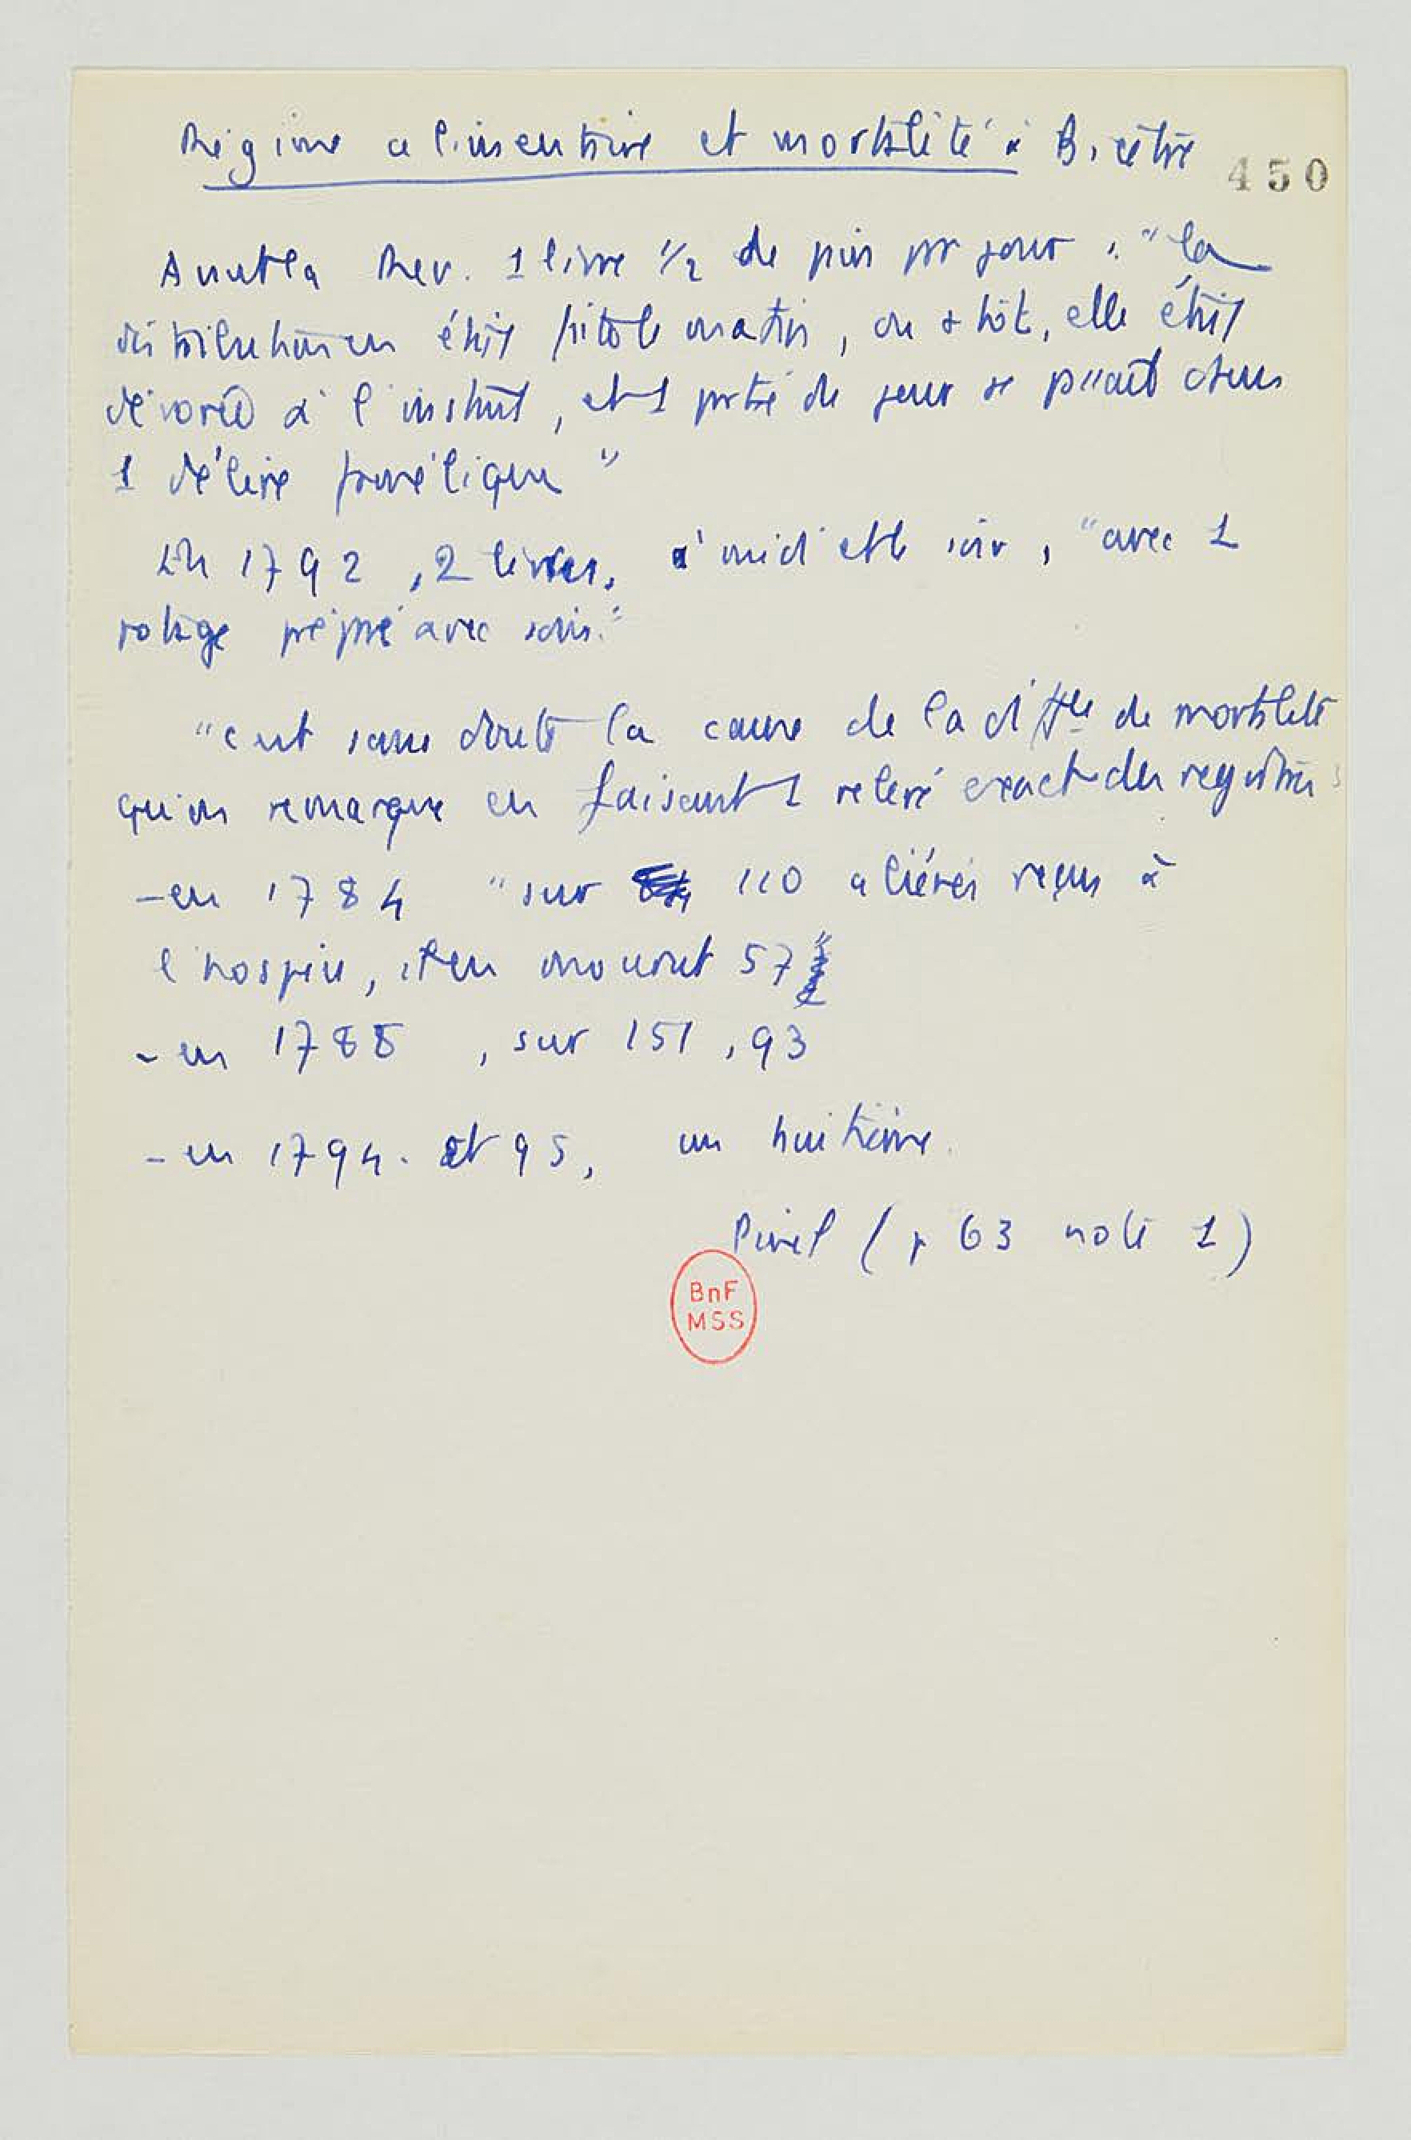 Régime alimentaire et mortalité à Bicêtre
450
Avant la Rev. 1 livre 1/2 de pain pr jour : "la
distribution en était faite le matin, ou + tôt, elle était
dévorée à l'instant, et 1 partie du jour se passait dans
1 délire famélique"
En 1792, 2 livres, à midi et le soir, "avec 1
potage préparé avec soin."
"c'est sans doute la cause de la diffce de mortalité
qu'on remarque en faisant 1 relevé exact des registres"
- en 1784 "sur 110 aliénés reçus à
l'hospice, il en mourut 57"
- en 1788, sur 151, 93
- en 1794. et 95, un huitième.
Pinel (p 63 note 1)
BnF
MSS